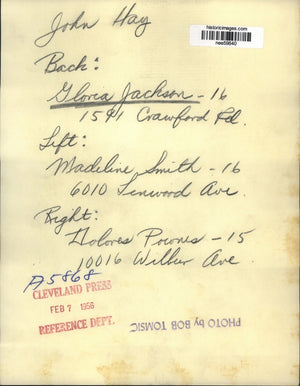 historicimages.com
nee59640
John Hay
Back:
Gloria Jackson - 16
1591 Crawford Rd.
Left:
Madeline Smith - 16
6010 Linwood Ave.
Right:
Dolores - 15
10016 Wilbur Ave.
A5868
CLEVELAND PRESS
FEB 7 1956
REFERENCE DEPT.
PHOTO by BOB TOMSIC